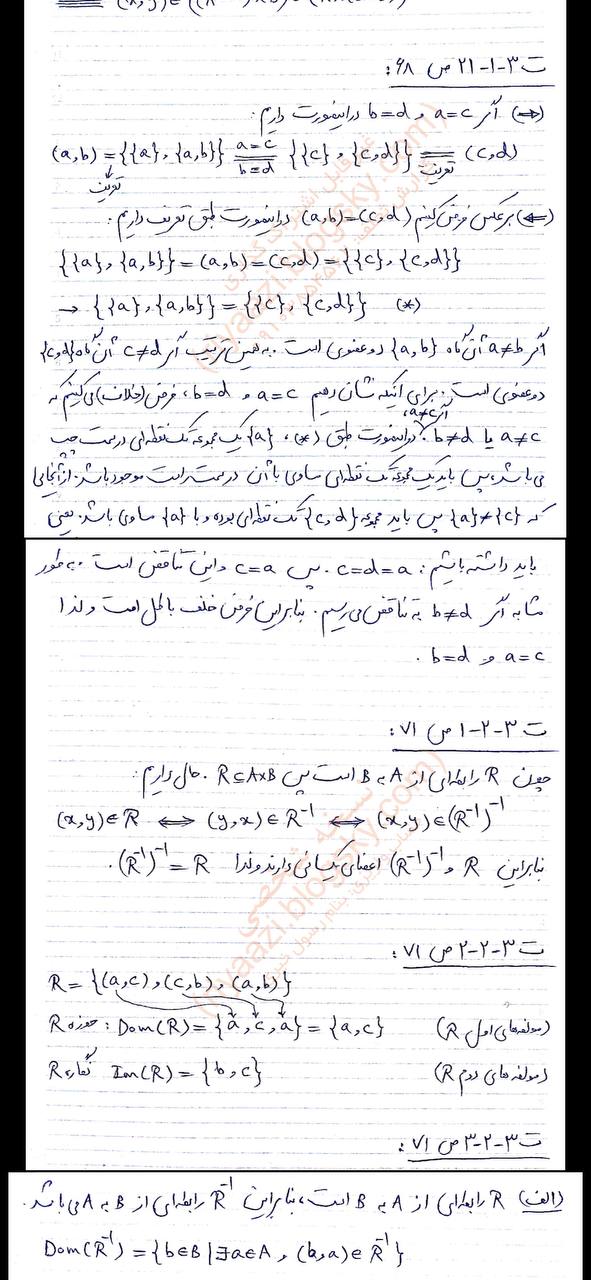 ت ۳-۱-۲۱ ص ۶۸:
(⇒) اگر a=c و b=d در اینصورت داریم:
(a,b) = {{a}, {a,b}} a=c b=d {{c}, {c,d}} = تعریف (c,d)
تعریف
(⇐) برعکس فرض کنیم (a,b)=(c,d) در اینصورت طبق تعریف داریم:
{{a}, {a,b}} = (a,b) = (c,d) = {{c}, {c,d}}
→ {{a}, {a,b}} = {{c}, {c,d}} (*)
اگر a≠b آن گاه {a,b} دو عضوی است. به همین ترتیب اگر c≠d آن گاه {c,d}
دو عضوی است. برای اینکه نشان دهیم a=c و b=d، فرض (خلاف) می کنیم که
اگر a≠c،
a≠c یا b≠d. در اینصورت طبق (*)، {a} یک مجموعه تک نقطه ای در سمت چپ
می باشد، پس باید یک مجموعه تک نقطه ای مساوی با آن در سمت راست موجود باشد. از آنجایی
که {a}≠{c} پس باید مجموعه {c,d} تک نقطه ای بوده و با {a} مساوی باشد. یعنی
باید داشته باشیم: c=d=a. پس c=a و این تناقض است. به طور
مشابه اگر b≠d به تناقض می رسیم. بنابراین فرض خلف باطل است و لذا
a=c و b=d.
ت ۳-۲-۱ ص ۷۱:
چون R رابطه ای از A به B است پس R⊆A×B. حال داریم:
(x,y)∈R ⟺ (y,x)∈R⁻¹ ⟺ (x,y)∈(R⁻¹)⁻¹
بنابراین R و (R⁻¹)⁻¹ اعضای یکسانی دارند و لذا (R⁻¹)⁻¹ = R.
ت ۳-۲-۲ ص ۷۱:
R = {(a,c), (c,b), (a,b)}
(مولفه های اول R) حوزه R: Dom(R) = {a,c,a} = {a,c}
(مولفه های دوم R) نگاره R Im(R) = {b,c}
ت ۳-۲-۳ ص ۷۱:
(الف) R رابطه ای از A به B است، بنابراین R⁻¹ رابطه ای از B به A می باشد.
Dom(R⁻¹) = {b∈B | ∃a∈A, (b,a)∈R⁻¹}